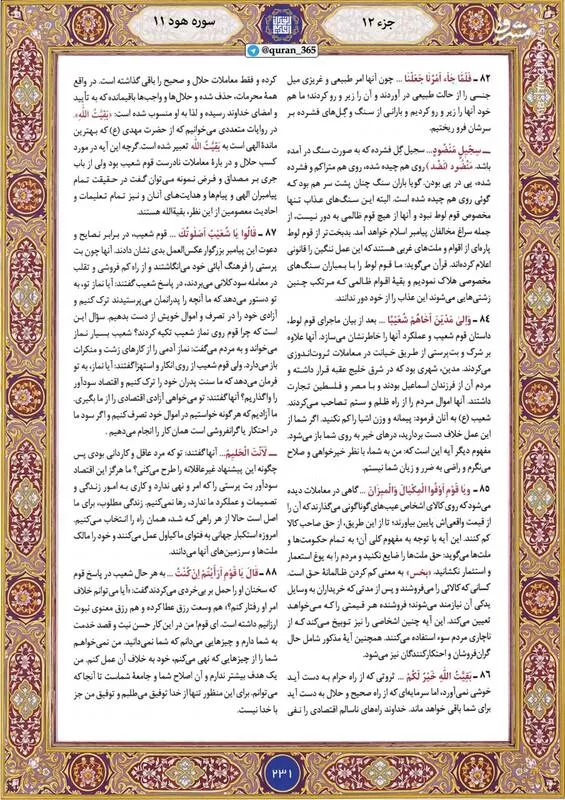 جزء ۱۲
سوره هود ۱۱
@quran_365
مشرق
۸۲ ـ فَلَمّا جاءَ اَمْرُنا جَعَلْنا ... چون آنها امر طبیعی و غریزی میل
جنسی را از حالت طبیعی در آوردند و آن را زیر و رو کردند؛ ما هم
خود آنها را زیر و رو کردیم و بارانی از سنگ و گِل‌های فشرده بر
سرشان فرو ریختیم.
ــ سِجّیلٍ مَنْضُودٍ... سجیل گِل فشرده که به صورت سنگ در آمده
باشد. مَنْضُود (نَضْد) روی هم چیده شده، روی هم متراکم و فشرده
شده، پی در پی بودن. گویا باران سنگ چنان پشت سر هم بود که
گوئی روی هم چیده شده است. البته این سنگ‌های عذاب تنها
مخصوص قوم لوط نبود و آنها از هیچ قوم ظالمی به دور نیست، از
جمله سراغ مخالفان پیامبر اسلام خواهد آمد. بدبخت‌تر از قوم لوط
پاره‌ای از اقوام و ملت‌های غربی هستند که این عمل ننگین را قانونی
اعلام کرده‌اند. قرآن می‌گوید: ما قوم لوط را با بمباران سنگ‌های
مخصوصی هلاک نمودیم و بقیهٔ اقوام ظالمی که مرتکب چنین
زشتی‌هایی می‌شوند این عذاب را از خود دور ندانند.
۸۴ ـ وَاِلیٰ مَدْیَنَ اَخاهُمْ شُعَیْبًا ... بعد از بیان ماجرای قوم لوط،
داستان قوم شعیب و عملکرد آنها را خاطرنشان می‌سازد. آنها علاوه
بر شرک و بت‌پرستی از طریق خیانت در معاملات ثروت‌اندوزی
می‌کردند. مدین، شهری بود که در شرق خلیج عقبه قرار داشته و
مردم آن از فرزندان اسماعیل بودند و با مصر و فلسطین تجارت
داشتند. آنها اموال مردم را از راه ظلم و ستم تصاحب می‌کردند.
شعیب (ع) به آنان فرمود: پیمانه و وزن اشیا را کم نکنید. اگر شما از
این عمل خلاف دست بردارید، درهای خیر به روی شما باز می‌شود.
مفهوم دیگر آیه این است که: من به شما، با نظر خیرخواهی و صلاح
می‌نگرم و راضی به ضرر و زیان شما نیستم.
۸۵ ـ وَیا قَوْمِ اَوْفُوا الْمِکْیالَ وَالْمیزانَ ... گاهی در معاملات دیده
می‌شود که روی کالای اشخاص عیب‌های گوناگونی می‌گذارند که آن را
از قیمت واقعی‌اش پایین بیاورند؛ تا از این طریق، از حق صاحب کالا
کم کنند. این آیه با توجه به مفهوم کلی آن؛ به تمام حکومت‌ها و
ملت‌ها می‌گوید: حق ملت‌ها را ضایع نکنید و مردم را به یوغ استعمار
و استثمار نکشانید. «بخس» به معنی کم کردن ظالمانهٔ حق است.
کسانی که کالائی را می‌فروشند و پس از مدتی که خریداران به وسایل
یدکی آن نیازمند می‌شوند؛ فروشنده هر قیمتی را که می‌خواهد
تعیین می‌کند. این آیه چنین اشخاصی را نیز توبیخ می‌کند که از
ناچاری مردم سوء استفاده می‌کنند. همچنین آیهٔ مذکور شامل حال
گران‌فروشان و احتکارکنندگان نیز می‌شود.
۸۶ ـ بَقِیَّتُ اللهِ خَیْرٌ لَکُمْ ... ثروتی که از راه حرام به دست آید
خوشی نمی‌آورد، اما سرمایه‌ای که از راه صحیح و حلال به دست آید
برای شما باقی خواهد ماند. خداوند راه‌های ناسالم اقتصادی را نفی
کرده و فقط معاملات حلال و صحیح را باقی گذاشته است. در واقع
همهٔ محرمات، حذف شده و حلال‌ها و واجب‌ها باقیمانده که به تأیید
و امضای خداوند رسیده و لذا به او منسوب شده است: «بَقِیَّتُ اللهِ».
در روایات متعددی می‌خوانیم که از حضرت مهدی (ع) که بهترین
ماندهٔ الهی است به بَقِیَّتُ اللهِ تعبیر شده است. گرچه این آیه در مورد
کسب حلال و در بارهٔ معاملات نادرست قوم شعیب بود ولی از باب
جری بر مصداق و فرض نمونه می‌توان گفت در حقیقت تمام
پیامبران الهی و پیام‌ها و هدایت‌های آنان و نیز تمام تعلیمات و
احادیث معصومین از این نظر، بقیةالله هستند.
۸۷ ـ قالُوا یا شُعَیْبُ اَصَلوتُکَ ... قوم شعیب، در برابر نصایح و
دعوت این پیامبر بزرگوار عکس‌العمل بدی نشان دادند. آنها چون بت
پرستی را فرهنگ آبائی خود می‌انگاشتند و از راه کم فروشی و تقلب
در معامله سود کلانی می‌بردند، در پاسخ شعیب گفتند: آیا نماز تو، به
تو دستور می‌دهد که ما آنچه را پدرانمان می‌پرستیدند ترک کنیم و
آزادی خود را در تصرف و اموال خویش از دست بدهیم. سؤال این
است که چرا قوم روی نماز شعیب تکیه کردند؟ شعیب بسیار نماز
می‌خواند و به مردم می‌گفت: نماز آدمی را از کارهای زشت و منکرات
باز می‌دارد. ولی قوم شعیب از روی انکار و استهزا گفتند: آیا نماز تو، به تو
فرمان می‌دهد که ما سنت پدران خود را ترک کنیم و اقتصاد سودآور
را واگذاریم؟ آنها گفتند: تو می‌خواهی آزادی اقتصادی را از ما بگیری.
ما آزادیم که هر گونه خواستیم در اموال خود تصرف کنیم و اگر سود ما
در احتکار یا گرانفروشی است همان کار را انجام می‌دهیم.
ــ لَاَنْتَ الْحَلیمُ... آنها گفتند: تو که مرد عاقل و کاردانی بودی پس
چگونه این پیشنهاد غیرعاقلانه را طرح می‌کنی؟ ما هرگز این اقتصاد
سودآور بت پرستی را که امر و نهی ندارد و کاری به امور زندگی و
تصمیمات و عملکرد ما ندارد، رها نمی‌کنیم. زندگی مطلوب، برای ما
اصل است حالا از هر راهی که شد، همان راه را انتخاب می‌کنیم.
امروزه استکبار جهانی به فتوای ماکیاول عمل می‌کنند و خود را مالک
ملت‌ها و سرزمین‌های آنها می‌دانند.
۸۸ ـ قالَ یا قَوْمِ اَرَاَیْتُمْ اِنْ کُنْتُ ... به هر حال شعیب در پاسخ قوم
که سخنان او را حمل بر بی‌خردی می‌کردند گفت: «آیا می‌توانم خلاف
امر او رفتار کنم؟» هم وسعت رزق عطا کرده و هم رزق معنوی نبوت
ارزانیم داشته است. ای قوم! من در این کار حسن نیت و قصد خدمت
به شما دارم و چیزهایی می‌دانم که شما نمی‌دانید. من نمی‌خواهم
شما را از چیزهایی که نهی می‌کنم، خود به خلاف آن عمل کنم. من
یک هدف بیشتر ندارم و آن اصلاح شما و جامعهٔ شماست تا آنجا که
می‌توانم. برای این منظور تنها از خدا توفیق می‌طلبم و توفیق من جز
با خدا نیست.
۲۳۱